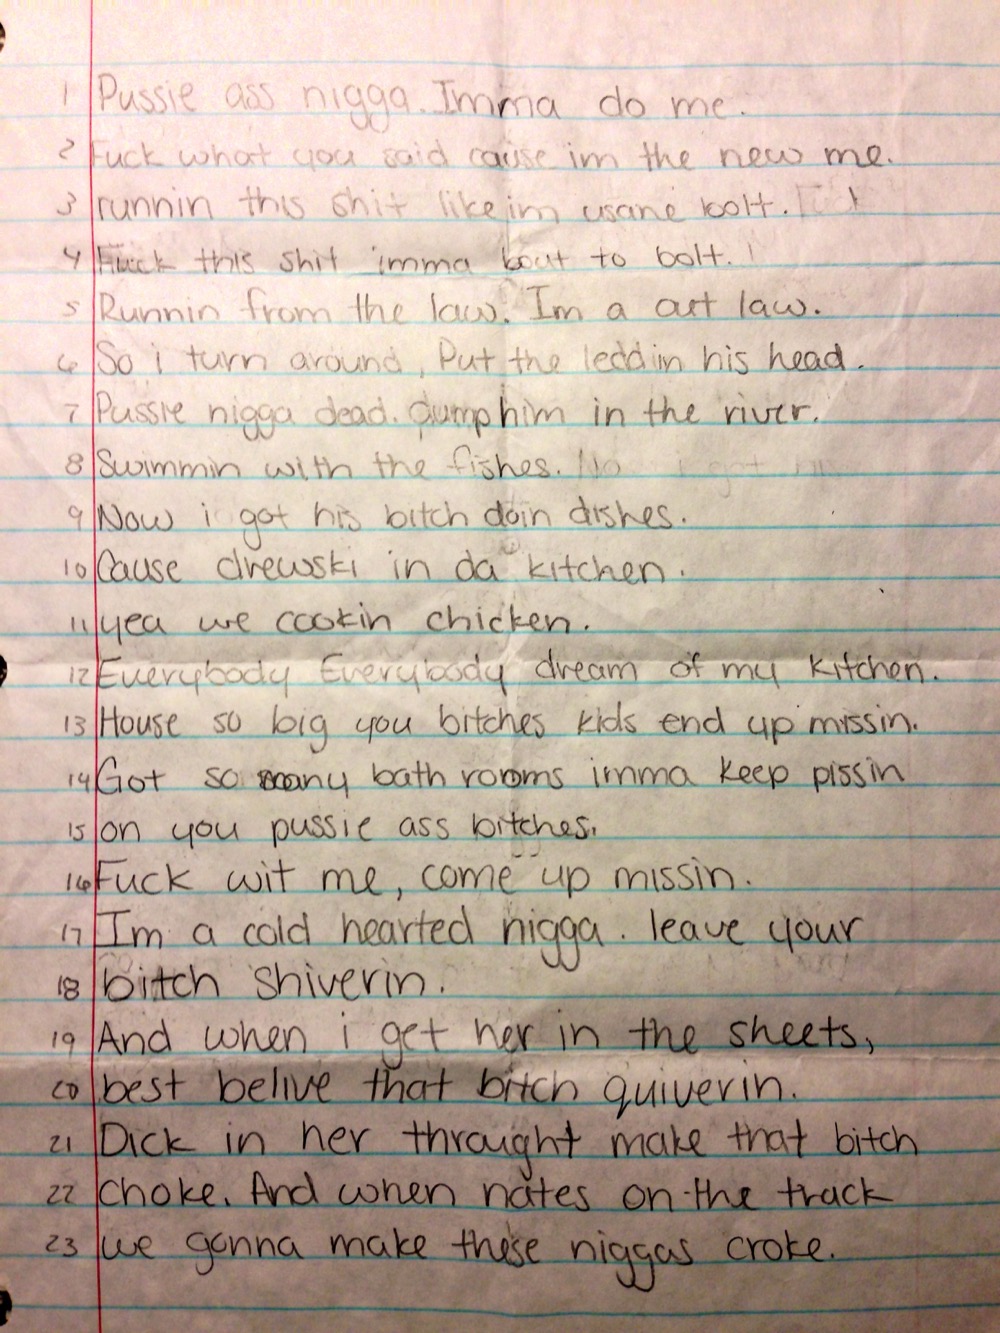 1 Pussie ass nigga. Imma do me.
2 Fuck what you said cause im the new me.
3 runnin this shit like im usane bolt.
4 Fuck this shit imma bout to bolt.
5 Runnin from the law. Im a out law.
6 So i turn around, Put the ledd in his head.
7 Pussie nigga dead. dump him in the river.
8 Swimmin with the fishes.
9 Now i got his bitch doin dishes.
10 Cause drewski in da kitchen.
11 yea we cookin chicken.
12 Everybody Everybody dream of my kitchen.
13 House so big you bitches kids end up missin.
14 Got so many bath rooms imma keep pissin
15 on you pussie ass bitches.
16 Fuck wit me, come up missin.
17 Im a cold hearted nigga. leave your
18 bitch shiverin.
19 And when i get her in the sheets,
20 best belive that bitch quiverin.
21 Dick in her throught make that bitch
22 choke. And when nates on the track
23 we gonna make these niggas croke.